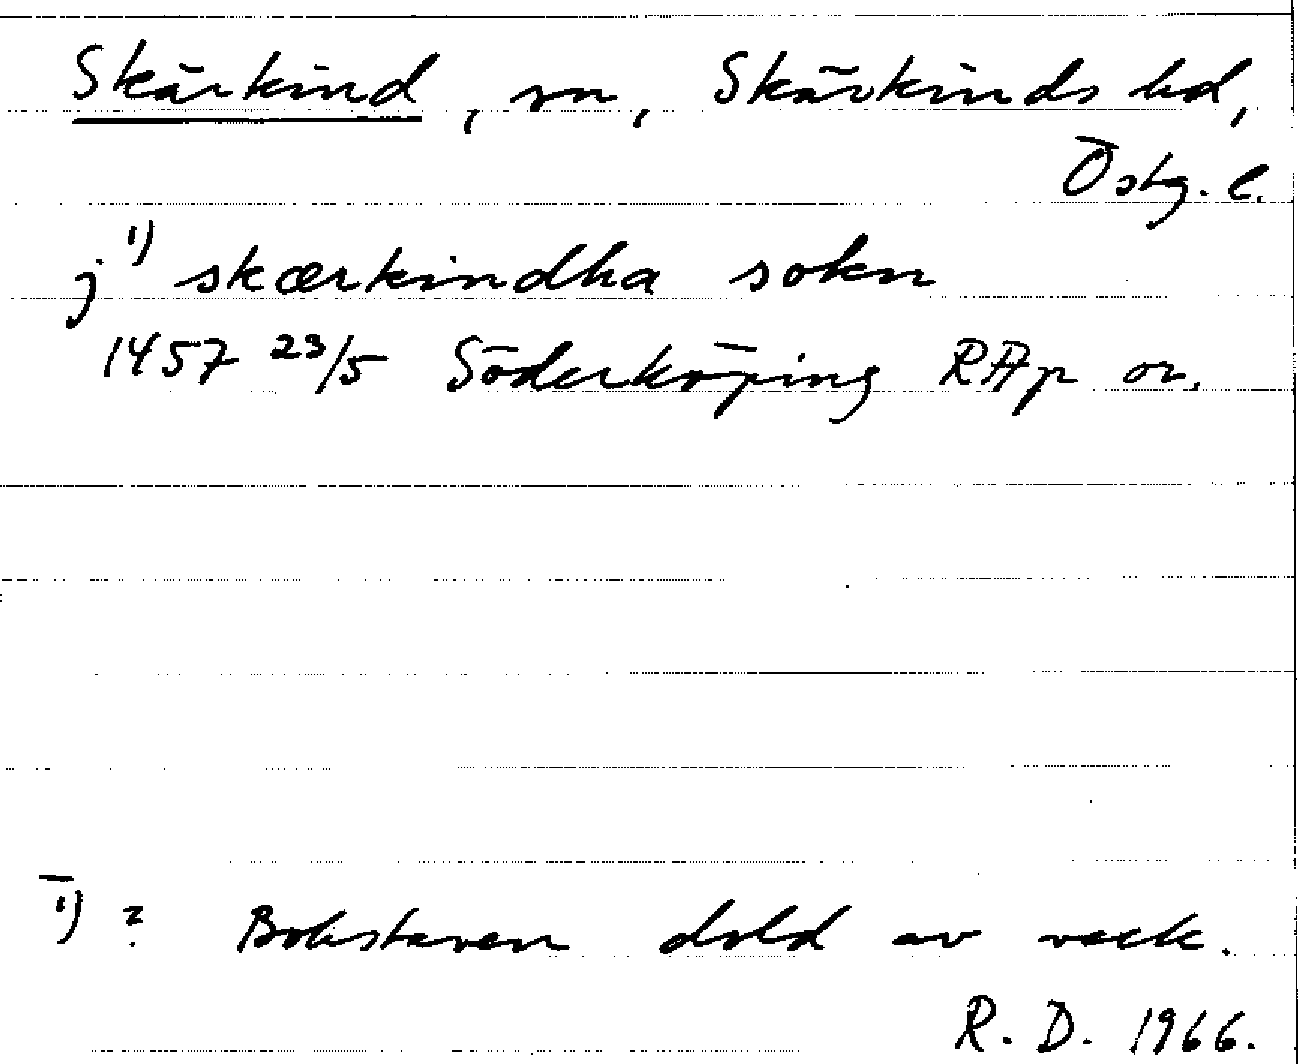 Skärkind, sn, Skärkinds hd,
Östg. l.
j 1) skærkindha sokn
1457 23/5 Söderköping RAp or.
1) ? Bokstaven dold av veck.
R. D. 1966.